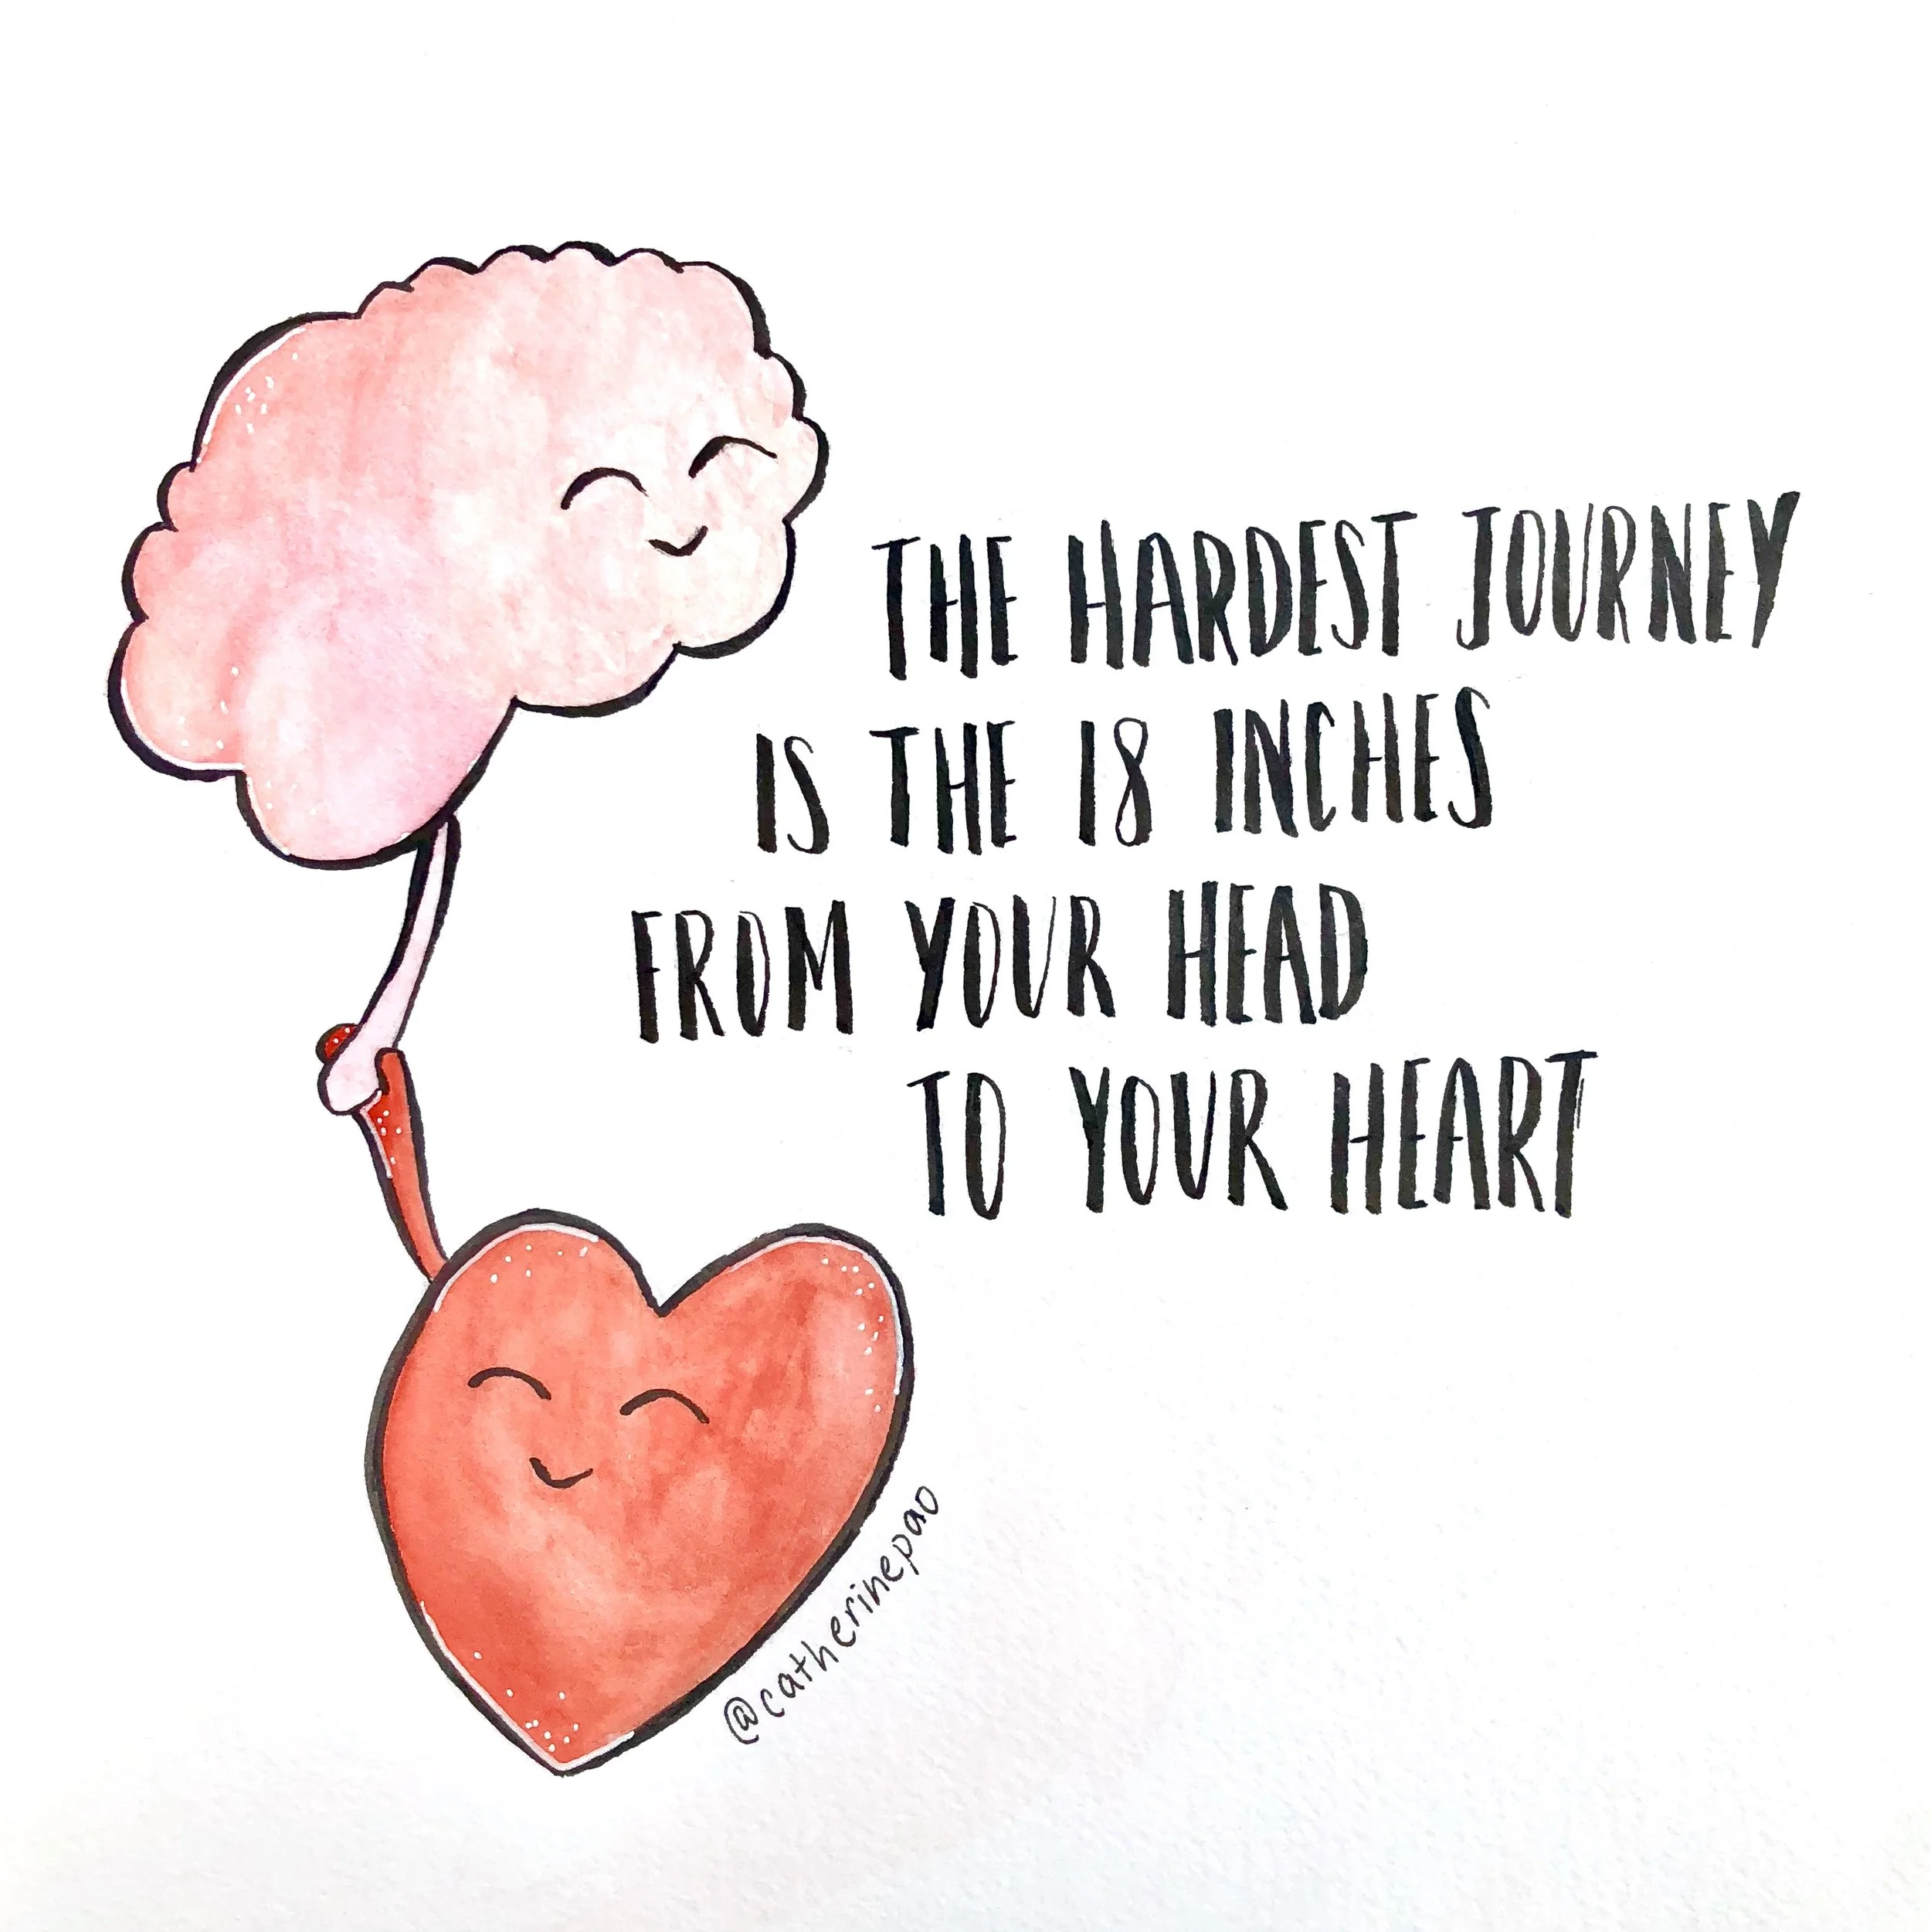 THE HARDEST JOURNEY
IS THE 18 INCHES
FROM YOUR HEAD
TO YOUR HEART
@catherinepao